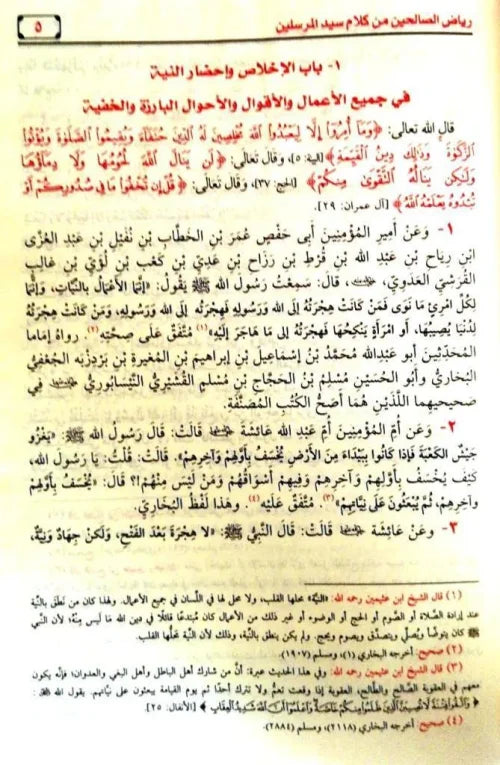 رياض الصالحين من كلام سيد المرسلين
٥
١- باب الإخلاص وإحضار النية
في جميع الأعمال والأقوال والأحوال البارزة والخفية
قال الله تعالى: ﴿وَمَآ أُمِرُوٓا۟ إِلَّا لِيَعْبُدُوا۟ ٱللَّهَ مُخْلِصِينَ لَهُ ٱلدِّينَ حُنَفَآءَ وَيُقِيمُوا۟ ٱلصَّلَوٰةَ وَيُؤْتُوا۟
ٱلزَّكَوٰةَ وَذَٰلِكَ دِينُ ٱلْقَيِّمَةِ﴾ [البينة: ٥]، وقال تعالى: ﴿لَن يَنَالَ ٱللَّهَ لُحُومُهَا وَلَا دِمَآؤُهَا
وَلَٰكِن يَنَالُهُ ٱلتَّقْوَىٰ مِنكُمْ﴾ [الحج: ٣٧]، وقال تعالى: ﴿قُلْ إِن تُخْفُوا۟ مَا فِى صُدُورِكُمْ أَوْ
تُبْدُوهُ يَعْلَمْهُ ٱللَّهُ﴾ [آل عمران: ٢٩].
١- وَعَن أميرِ المُؤْمِنِينَ أبي حَفْصٍ عُمَرَ بْنِ الخَطَّابِ بْنِ نُفَيْلِ بْنِ عَبْدِ العُزَّى
ابْنِ رِيَاحِ بْنِ عَبْدِ اللهِ بْنِ قُرْطِ بْنِ رَزَاحِ بْنِ عَدِيِّ بْنِ كَعْبِ بْنِ لُؤَيِّ بْنِ غالِبٍ
القُرَشِيِّ العَدَوِيِّ، رضي الله عنه، قال: سَمِعْتُ رسولَ الله ﷺ يَقُولُ: «إنَّمَا الأَعْمَالُ بِالنِّيَّاتِ، وَإِنَّمَا
لِكُلِّ امْرِئٍ مَا نَوَى فَمَنْ كَانَتْ هِجْرَتُهُ إلَى الله وَرَسُولِهِ فَهِجْرَتُهُ إلَى الله وَرَسُولِهِ، وَمَنْ كَانَتْ هِجْرَتُهُ
لِدُنْيَا يُصِيبُهَا، أو امْرَأَةٍ يَنْكِحُهَا فَهِجْرَتُهُ إلى مَا هَاجَرَ إلَيْهِ»(١) مُتَّفَقٌ عَلَى صِحَّتِهِ(٢). رواهُ إماما
المُحَدِّثِينَ أبو عَبْدِالله مُحَمَّدُ بْنُ إسْمَاعِيلَ بْنِ إبراهيمَ بْنِ المُغيرةِ بْنِ بَرْدِزْبَه الجُعْفِيُّ
البُخَارِيُّ وأبُو الحُسَيْنِ مُسْلِمُ بْنُ الحَجَّاجِ بْنِ مُسْلِمٍ القُشَيْرِيُّ النَّيْسَابُورِيُّ في
صَحِيحَيهِما اللَّذَيْنِ هُمَا أصَحُّ الكُتُبِ المُصَنَّفَةِ.
٢- وَعَن أُمِّ المُؤْمِنِينَ أُمِّ عَبْدِ اللهِ عَائِشَةَ رضي الله عنها قالَتْ: قالَ رَسُولُ الله ﷺ: «يَغْزُو
جَيْشٌ الكَعْبَةَ فإذا كانُوا بِبَيْدَاءَ مِنَ الأرْضِ يُخْسَفُ بِأَوَّلِهِمْ وَآخِرِهِمْ». قَالَتْ: قُلْتُ: يَا رَسُولَ الله،
كَيْفَ يُخْسَفُ بِأَوَّلِهِمْ وَآخِرِهِمْ وَفِيهِمْ أسْوَاقُهُمْ وَمَنْ لَيْسَ مِنْهُمْ؟! قَالَ: «يُخْسَفُ بِأوَّلِهِمْ
وآخِرِهِمْ، ثُمَّ يُبْعَثُونَ عَلَى نِيَّاتِهِمْ»(٣). مُتَّفَقٌ عَلَيْهِ(٤). وهَذا لَفْظُ البُخَارِيِّ.
٣- وعَنْ عَائِشَةَ رضي الله عنها قَالَتْ: قَالَ النَّبِيُّ ﷺ: «لا هِجْرَةَ بَعْدَ الفَتْحِ، وَلَكِنْ جِهَادٌ وَنِيَّةٌ،
(١) قال الشيخ ابن عثيمين رحمه الله: «النيَّة» محلها القلب، ولا محل لها في اللِّسان في جميع الأعمال. ولهذا كان من نَطَق بالنيَّة
عند إرادة الصَّلاة أو الصَّوم أو الحج أو الوضوء أو غير ذلك من الأعمال كان مُبتدعًا قائلًا في دين الله ما ليس مِنْهُ؛ لأن النبي
ﷺ كان يتوضَّأ ويُصلِّي ويتصدَّق ويصوم ويحج. ولم يكن ينطق بالنيَّة، وذلك لأن النيَّة محلَّها القلب.
(٢) صحيح: أخرجه البخاري (١)، ومسلم (١٩٠٧).
(٣) قال الشيخ ابن عثيمين رحمه الله: وفي هذا الحديث عبرة: أنَّ من شارك أهل الباطل وأهل البغي والعدوان؛ فإنَّه يكون
معهم في العقوبة الصَّالح والطَّالح، العقوبة إذا وقعت تعمُّ ولا تترك أحدًا ثم يوم القيامة يبعثون على نيَّاتهم. يقول الله :
﴿وَٱتَّقُوا۟ فِتْنَةً لَّا تُصِيبَنَّ ٱلَّذِينَ ظَلَمُوا۟ مِنكُمْ خَآصَّةً وَٱعْلَمُوٓا۟ أَنَّ ٱللَّهَ شَدِيدُ ٱلْعِقَابِ﴾ [الأنفال: ٢٥].
(٤) صحيح: أخرجه البخاري (٢١١٨)، ومسلم (٢٨٨٤).